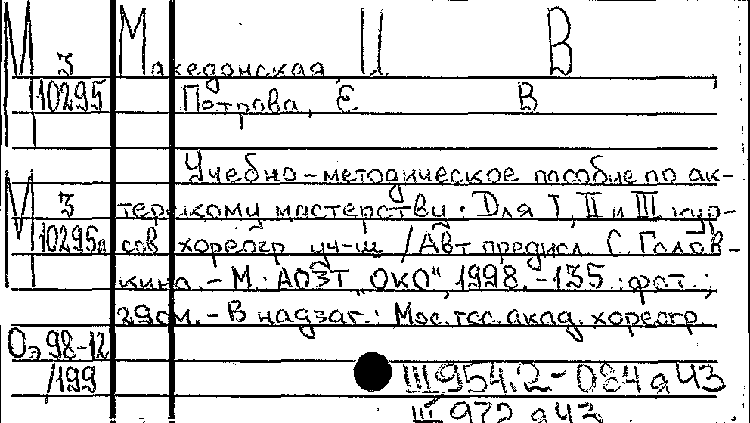 М Македонская, И В
З
10295 Петрова, Е В
Учебно-методическое пособие по ак-
М терскому мастерству: Для I, II и III кур-
З
10295а сов хореогр. уч-щ / Авт предисл. С. Голов-
кина. - М.: АОЗТ "ОКО", 1998. - 135 : фот. ;
29см. - В надзаг.: Мос. гос. акад. хореогр.
Оэ 98-12
/199 III 954.2-084 я 43
III 972 я 43